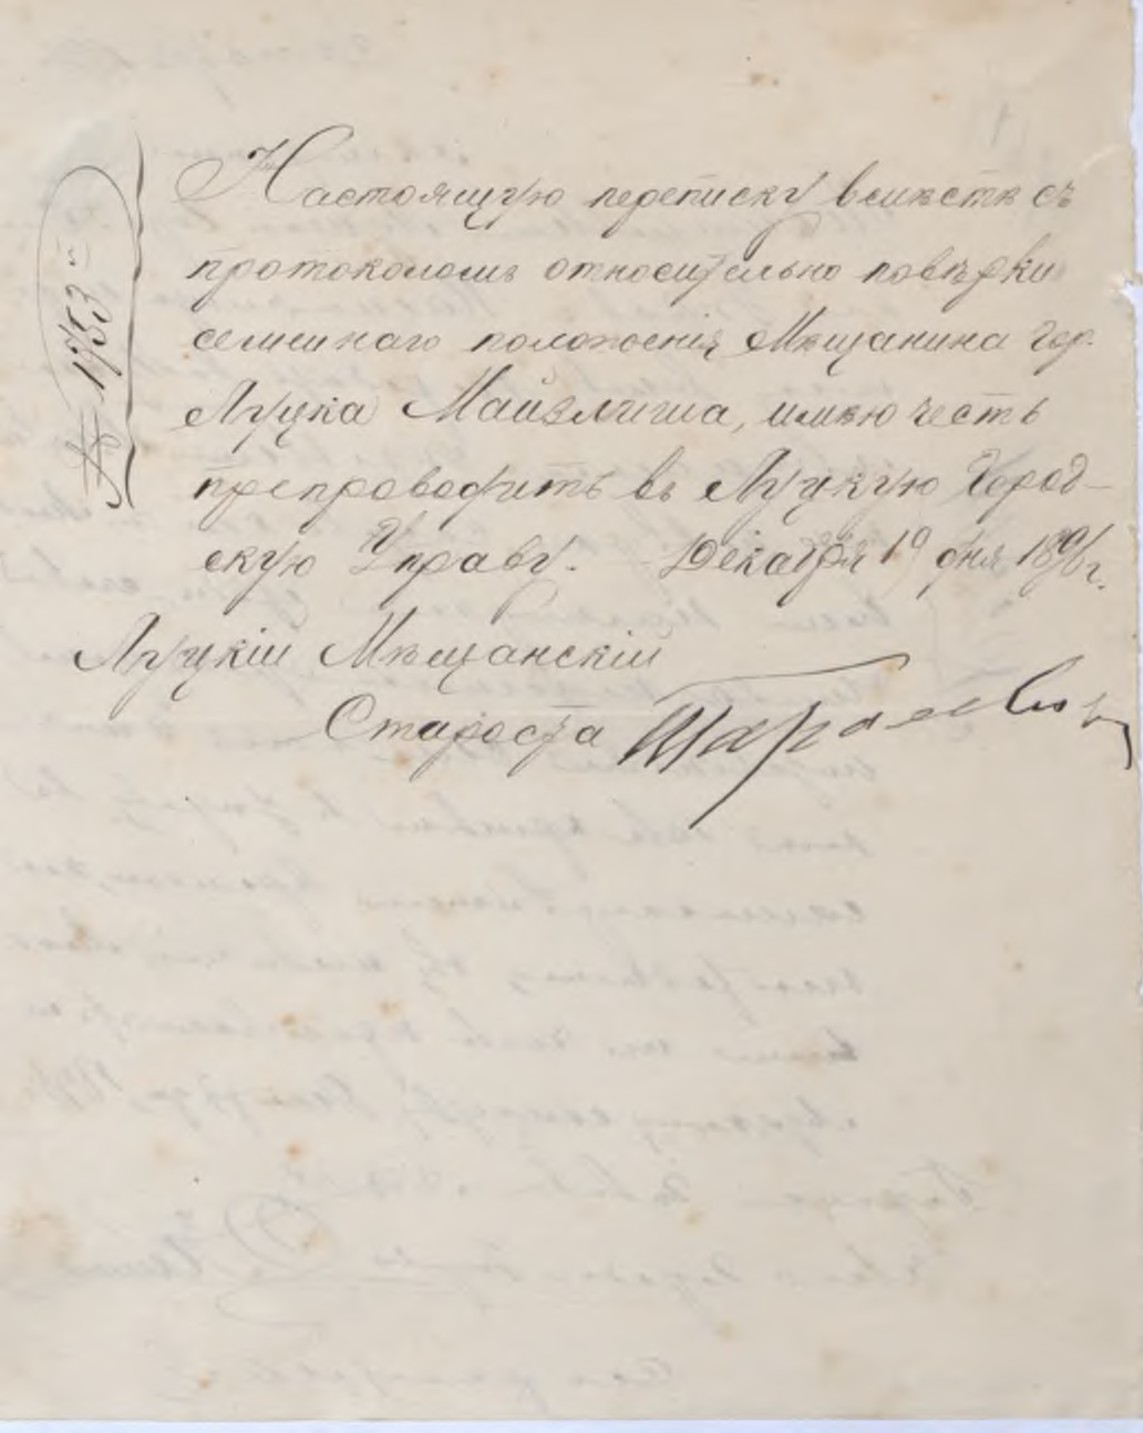 № 1753й
Настоящую переписку вмѣстѣ съ
протоколомъ относительно повѣрки
семейнаго положенія Мѣщанина гор.
Луцка Майзлиша, имѣю честь
препроводить въ Луцкую Город-
скую Управу. Декабря 19 дня 1891 г.
Луцкій Мѣщанскій
Староста